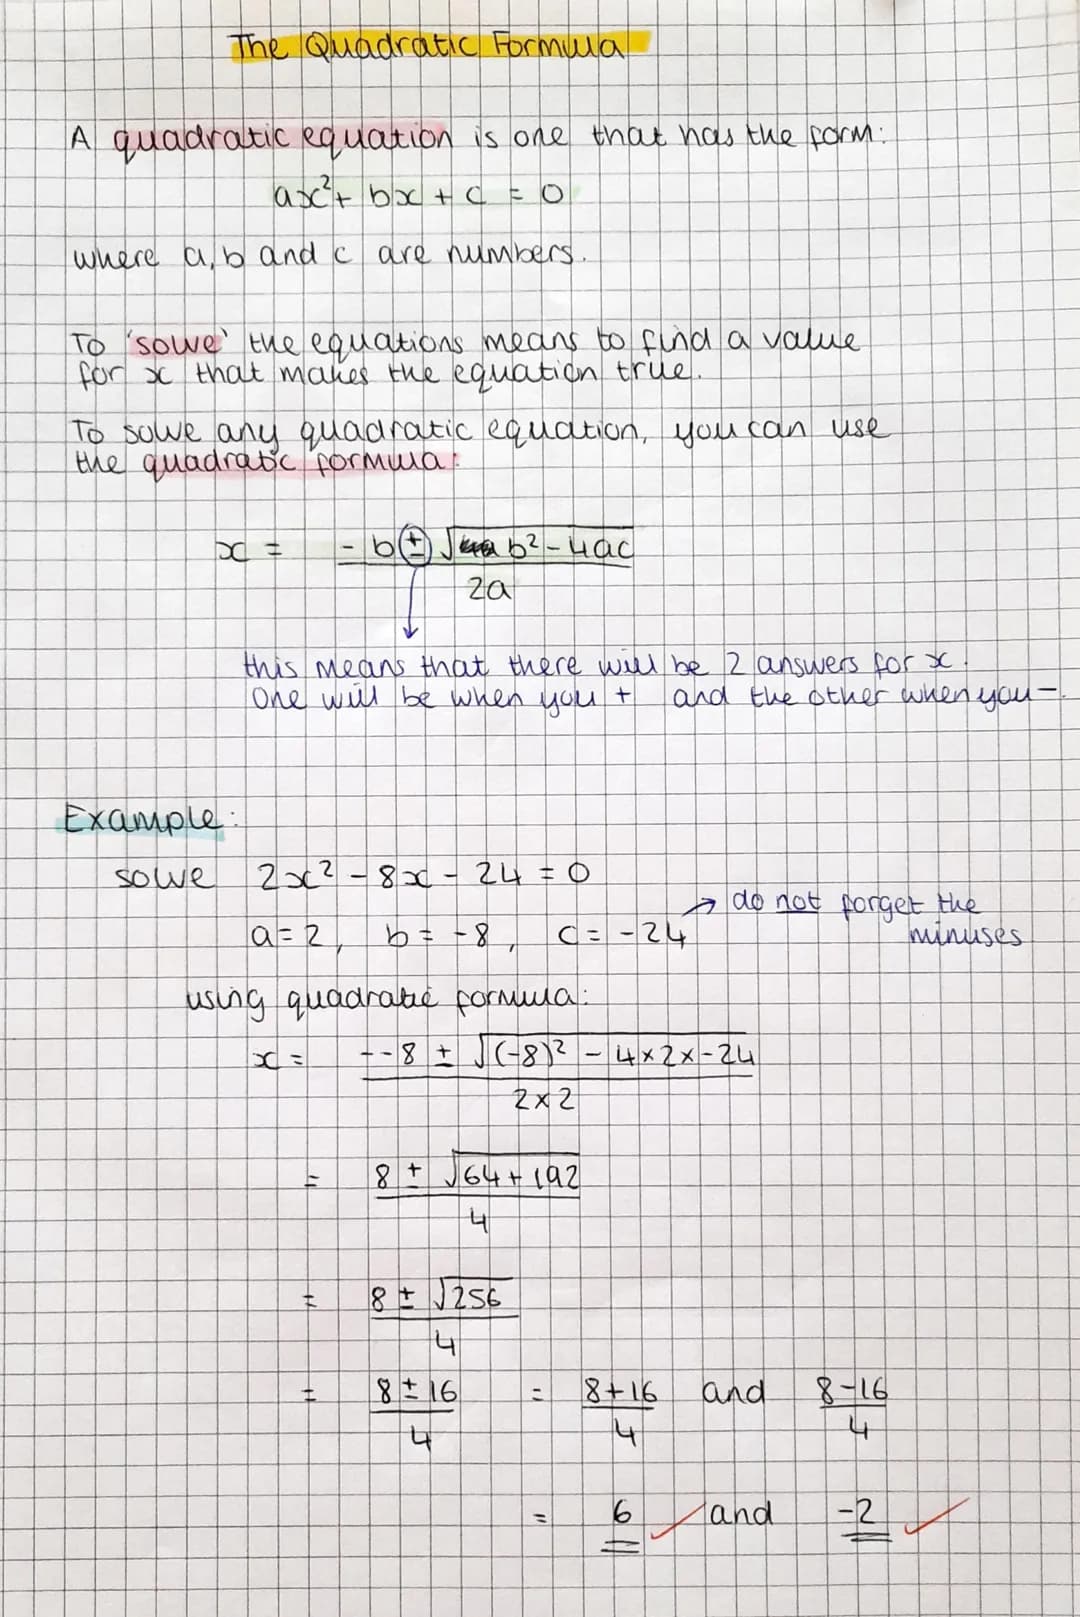 The Quadratic Formula
A quadratic equation is one that has the form:
ax² + bx + c = 0
where a, b and c are numbers.
To 'solve' the equations means to find a value
for x that makes the equation true.
To solve any quadratic equation, you can use
the quadratic formula:
x = -b ± √b² - 4ac
2a
this means that there will be 2 answers for x.
One will be when you + and the other when you -.
Example:
solve 2x² - 8x - 24 = 0
→ do not forget the
a = 2, b = -8, c = -24 minuses
using quadratic formula:
x = --8 ± √(-8)² - 4×2×-24
2×2
= 8 ± √64 + 192
4
= 8 ± √256
4
= 8 ± 16 = 8+16 and 8-16
4 4 4
= 6 ✓ and -2 ✓